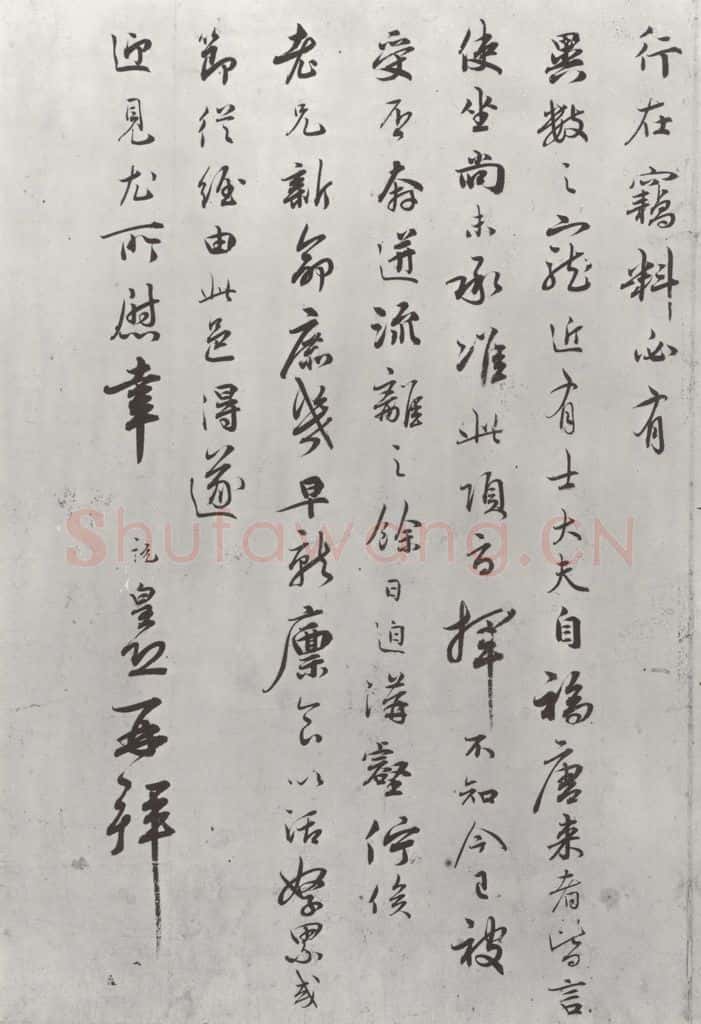 行在窃料必有
異數之寵近有士大夫自福唐来者皆言
使坐尚未承准此項言揮不知今已被
受否奔迸流離之餘日迫溝壑佇俟
老兄新命庶幾早就廪食以活孥累或
節從經由此邑得遂
迎見尤所慰幸 皇恐再拜
Shufawang.CN